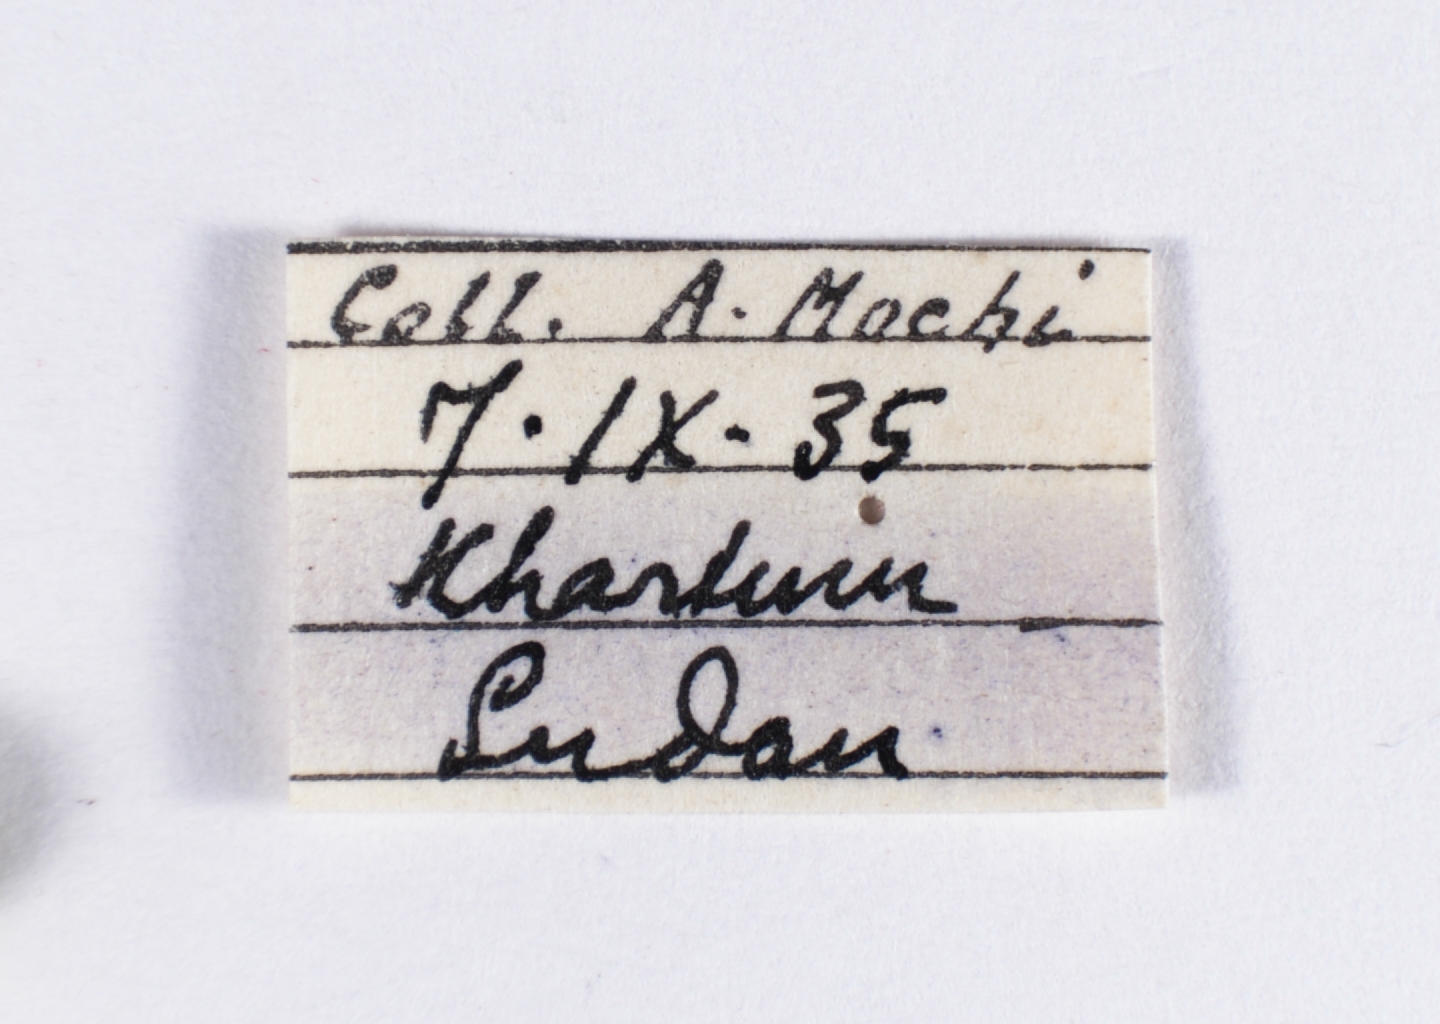 Coll. A. Mochi
7.IX.35
Khartum
Sudan